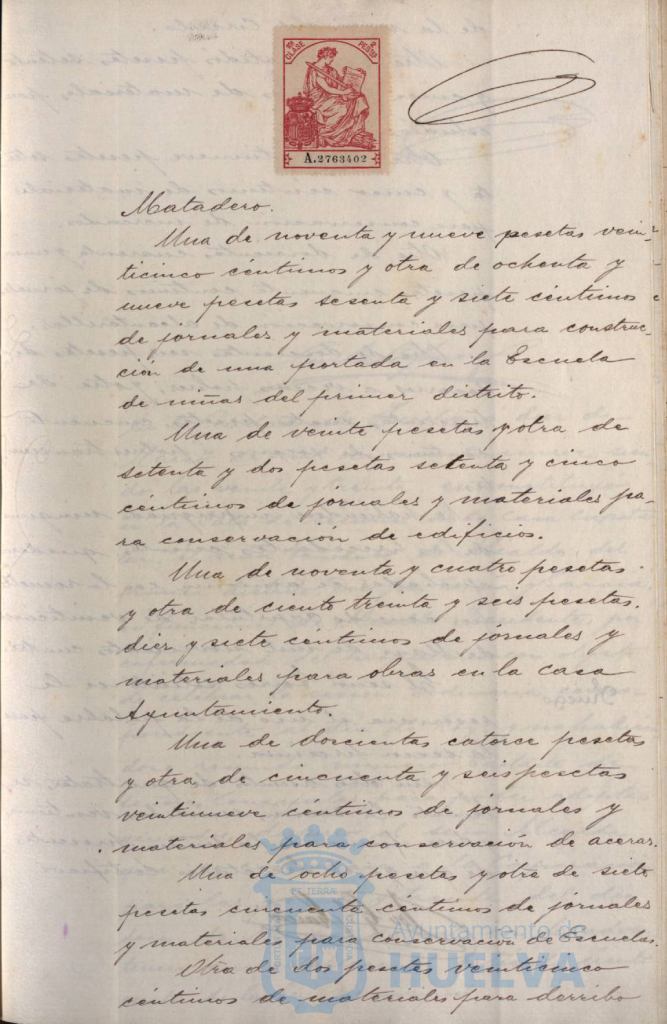 10ª CLASE
2 PESETAS
A.2763402
Matadero.
Una de noventa y nueve pesetas vein-
ticinco céntimos y otra de ochenta y
nueve pesetas sesenta y siete céntimos
de jornales y materiales para construc-
ción de una portada en la Escuela
de niñas del primer distrito.
Una de veinte pesetas y otra de
setenta y dos pesetas setenta y cinco
céntimos de jornales y materiales pa-
ra conservación de edificios.
Una de noventa y cuatro pesetas
y otra de ciento treinta y seis pesetas.
diez y siete céntimos de jornales y
materiales para obras en la casa
Ayuntamiento.
Una de doscientas catorce pesetas
y otra de cincuenta y seis pesetas
veintinueve céntimos de jornales y
materiales para conservación de aceras.
Una de ocho pesetas y otra de siete
pesetas cincuenta céntimos de jornales
y materiales para conservación de Escuelas.
Otra de dos pesetas veinticinco
céntimos de materiales para derribo
Ayuntamiento de
HUELVA